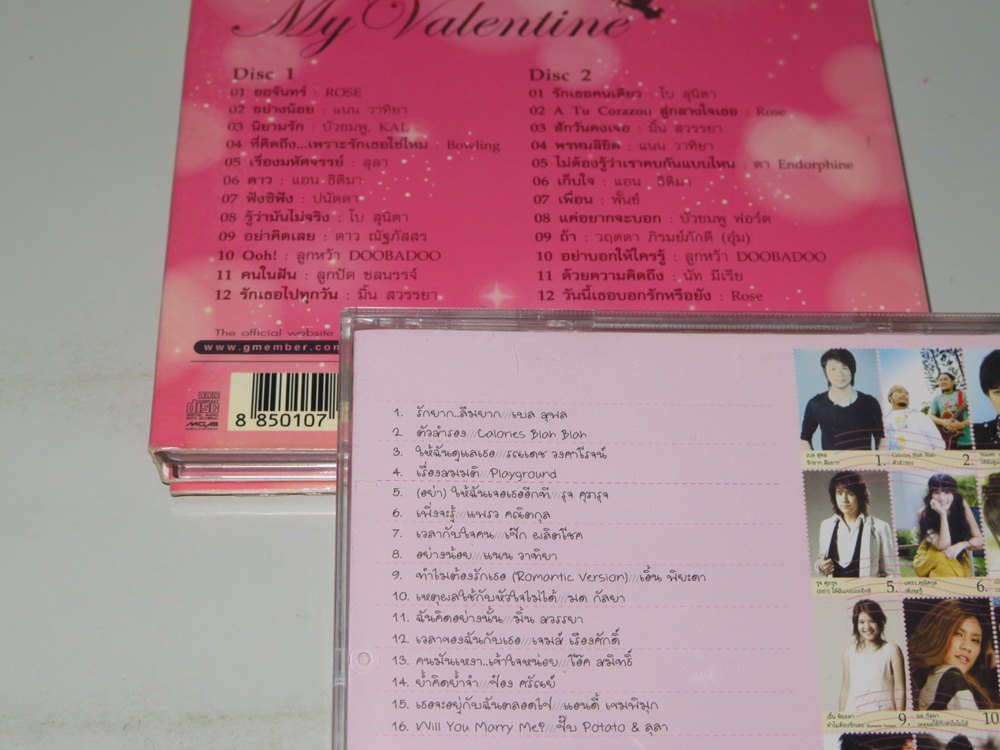 My Valentine
Disc 1
01 ขอจันทร์ : ROSE
02 อย่างน้อย : แนน วาทิยา
03 นิยามรัก : บัวชมพู. KAL
04 ที่คิดถึง...เพราะรักเธอใช่ไหม : Bowling
05 เรื่องมหัศจรรย์ : ลุลา
06 ดาว : แอน ธิติมา
07 ฟังซิฟัง : ปนัดดา
08 รู้ว่ามันไม่จริง : โบ สุนิตา
09 อย่าคิดเลย : ดาว ณัฐภัสสร
10 Ooh! : ลูกหว้า DOOBADOO
11 คนในฝัน : ลูกปัด ชลนรรจ์
12 รักเธอไปทุกวัน : มิ้น สวรรยา
Disc 2
01 รักเธอคนเดียว : โบ สุนิตา
02 A Tu Corazou สู่กลางใจเธอ : Rose
03 สักวันคงเจอ : มิ้น สวรรยา
04 พรหมลิขิต : แนน วาทิยา
05 ไม่ต้องรู้ว่าเราคบกันแบบไหน : ดา Endorphine
06 เก็บใจ : แอน ธิติมา
07 เพื่อน : พั้นช์
08 แค่อยากจะบอก : บัวชมพู ฟอร์ด
09 ถ้า : วฤตดา ภิรมย์ภักดี (อุ้ม)
10 อย่าบอกให้ใครรู้ : ลูกหว้า DOOBADOO
11 ด้วยความคิดถึง : นัท มีเรีย
12 วันนี้เธอบอกรักหรือยัง : Rose
The official website
www.gmember.com
8 850107
1. รักยาก..ลืมยาก///เบล สุพล
2. ตัวสำรอง///Calories Blah Blah
3. ให้ฉันดูแลเธอ///รณเดช วงศาโรจน์
4. เรื่องสมมติ///Playground
5. (อย่า) ให้ฉันเจอเธออีกที///รุจ ศุภรุจ
6. เพิ่งจะรู้///แพรว คณิตกุล
7. เวลากับใจคน///เป๊ก ผลิตโชค
8. อย่างน้อย///แนน วาทิยา
9. ทำไมต้องรักเธอ (Romantic Version)///เอิ้น พิยะดา
10. เหตุผลใช้กับหัวใจไม่ได้///มด กัลยา
11. ฉันคิดอย่างนั้น///มิ้น สวรรยา
12. เวลาของฉันกับเธอ///เจมส์ เรืองศักดิ์
13. คนมันเหงา..เข้าใจหน่อย///โอ๊ค สมิทธิ์
14. ย้ำคิดย้ำจำ///ป๋อง ศรัณย์
15. เธอจะอยู่กับฉันตลอดไป///แอนดี้ เขมพิมุก
16. Will You Marry Me?///ปั๊บ Potato & ลุลา
เบล สุพล
รักยาก..ลืมยาก 1.
Calories Blah Blah
ตัวสำรอง 2.
รุจ ศุภรุจ
(อย่า) ให้ฉันเจอเธออีกที 5.
แพรว คณิตกุล
เพิ่งจะรู้ 6.
เอิ้น พิยะดา
ทำไมต้องรักเธอ 9.
มด กัลยา
เหตุผลใช้กับหัวใจไม่ได้ 10